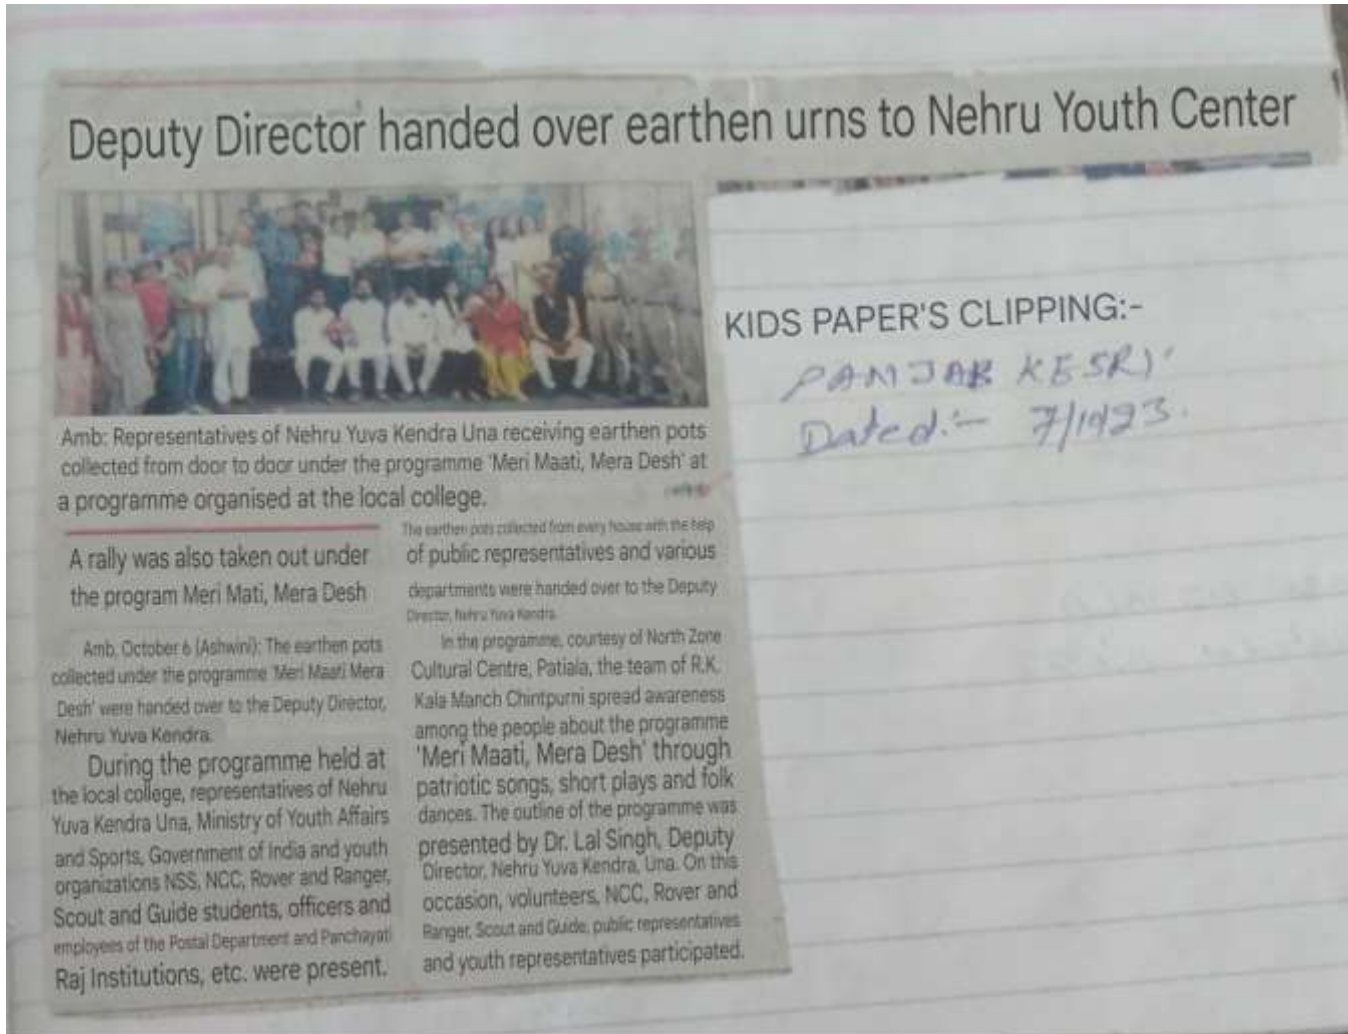 Deputy Director handed over earthen urns to Nehru Youth Center
KIDS PAPER'S CLIPPING:-
PANJAB KESRI
Dated:- 7/10/23.
Amb: Representatives of Nehru Yuva Kendra Una receiving earthen pots
collected from door to door under the programme 'Meri Maati, Mera Desh' at
a programme organised at the local college.
A rally was also taken out under
the program Meri Mati, Mera Desh
Amb, October 6 (Ashwini): The earthen pots
collected under the programme 'Meri Maati Mera
Desh' were handed over to the Deputy Director,
Nehru Yuva Kendra.
During the programme held at
the local college, representatives of Nehru
Yuva Kendra Una, Ministry of Youth Affairs
and Sports, Government of India and youth
organizations NSS, NCC, Rover and Ranger,
Scout and Guide students, officers and
employees of the Postal Department and Panchayati
Raj Institutions, etc. were present.
The earthen pots collected from every house with the help
of public representatives and various
departments were handed over to the Deputy
Director, Nehru Yuva Kendra.
In the programme, courtesy of North Zone
Cultural Centre, Patiala, the team of R.K.
Kala Manch Chintpurni spread awareness
among the people about the programme
'Meri Maati, Mera Desh' through
patriotic songs, short plays and folk
dances. The outline of the programme was
presented by Dr. Lal Singh, Deputy
Director, Nehru Yuva Kendra, Una. On this
occasion, volunteers, NCC, Rover and
Ranger, Scout and Guide, public representatives
and youth representatives participated.